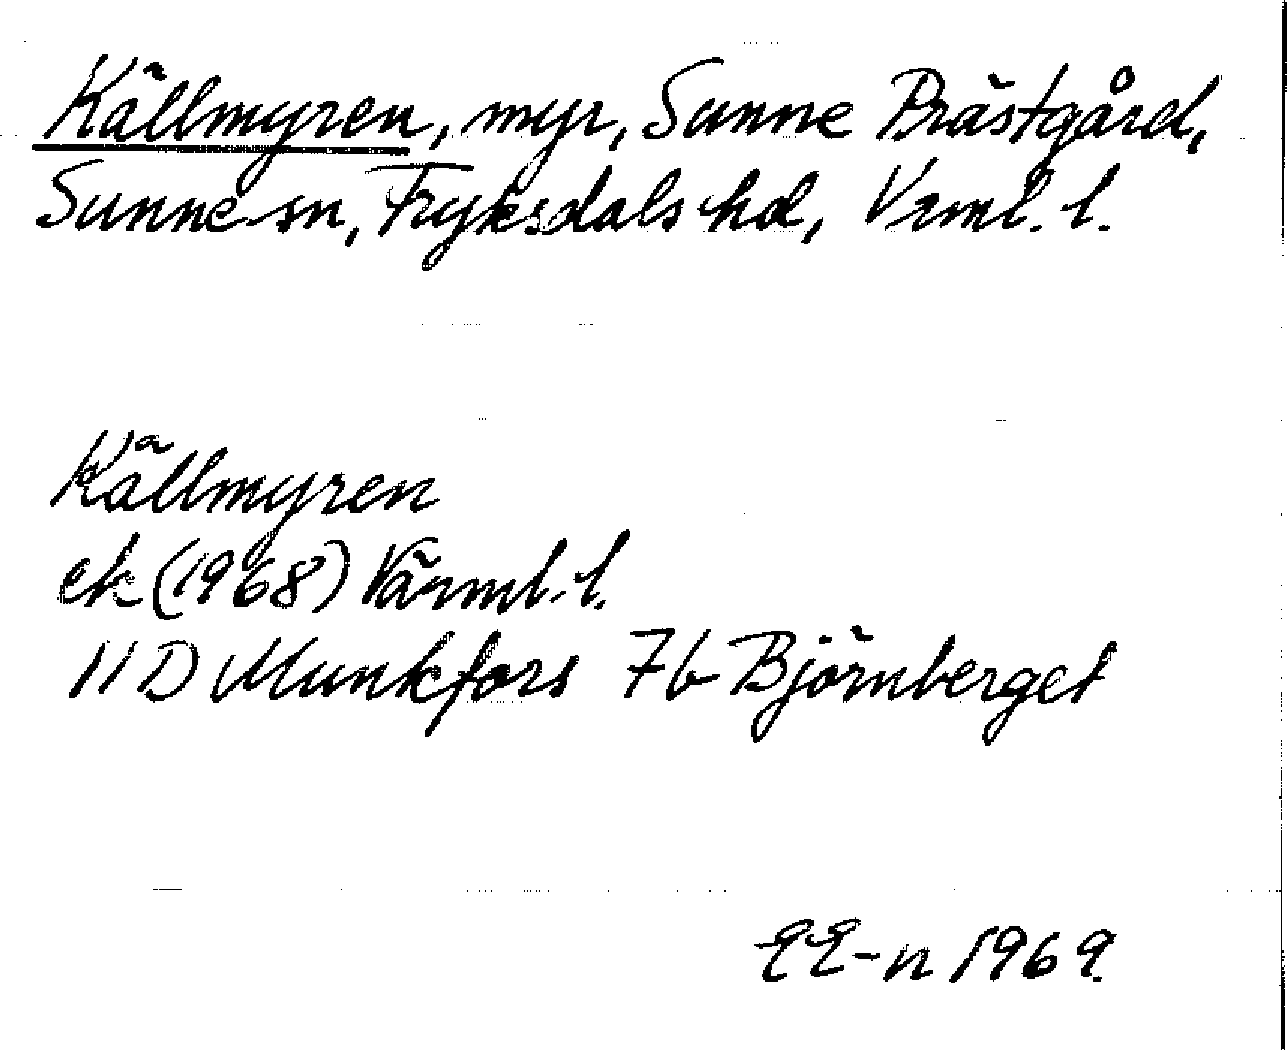 Källmyren, myr, Sunne Prästgård,
Sunne sn, Fryksdals hd, Vrml. l.
Källmyren
ek (1968) Värml. l.
11 D Munkfors 7b Björnberget
EE-n 1969.